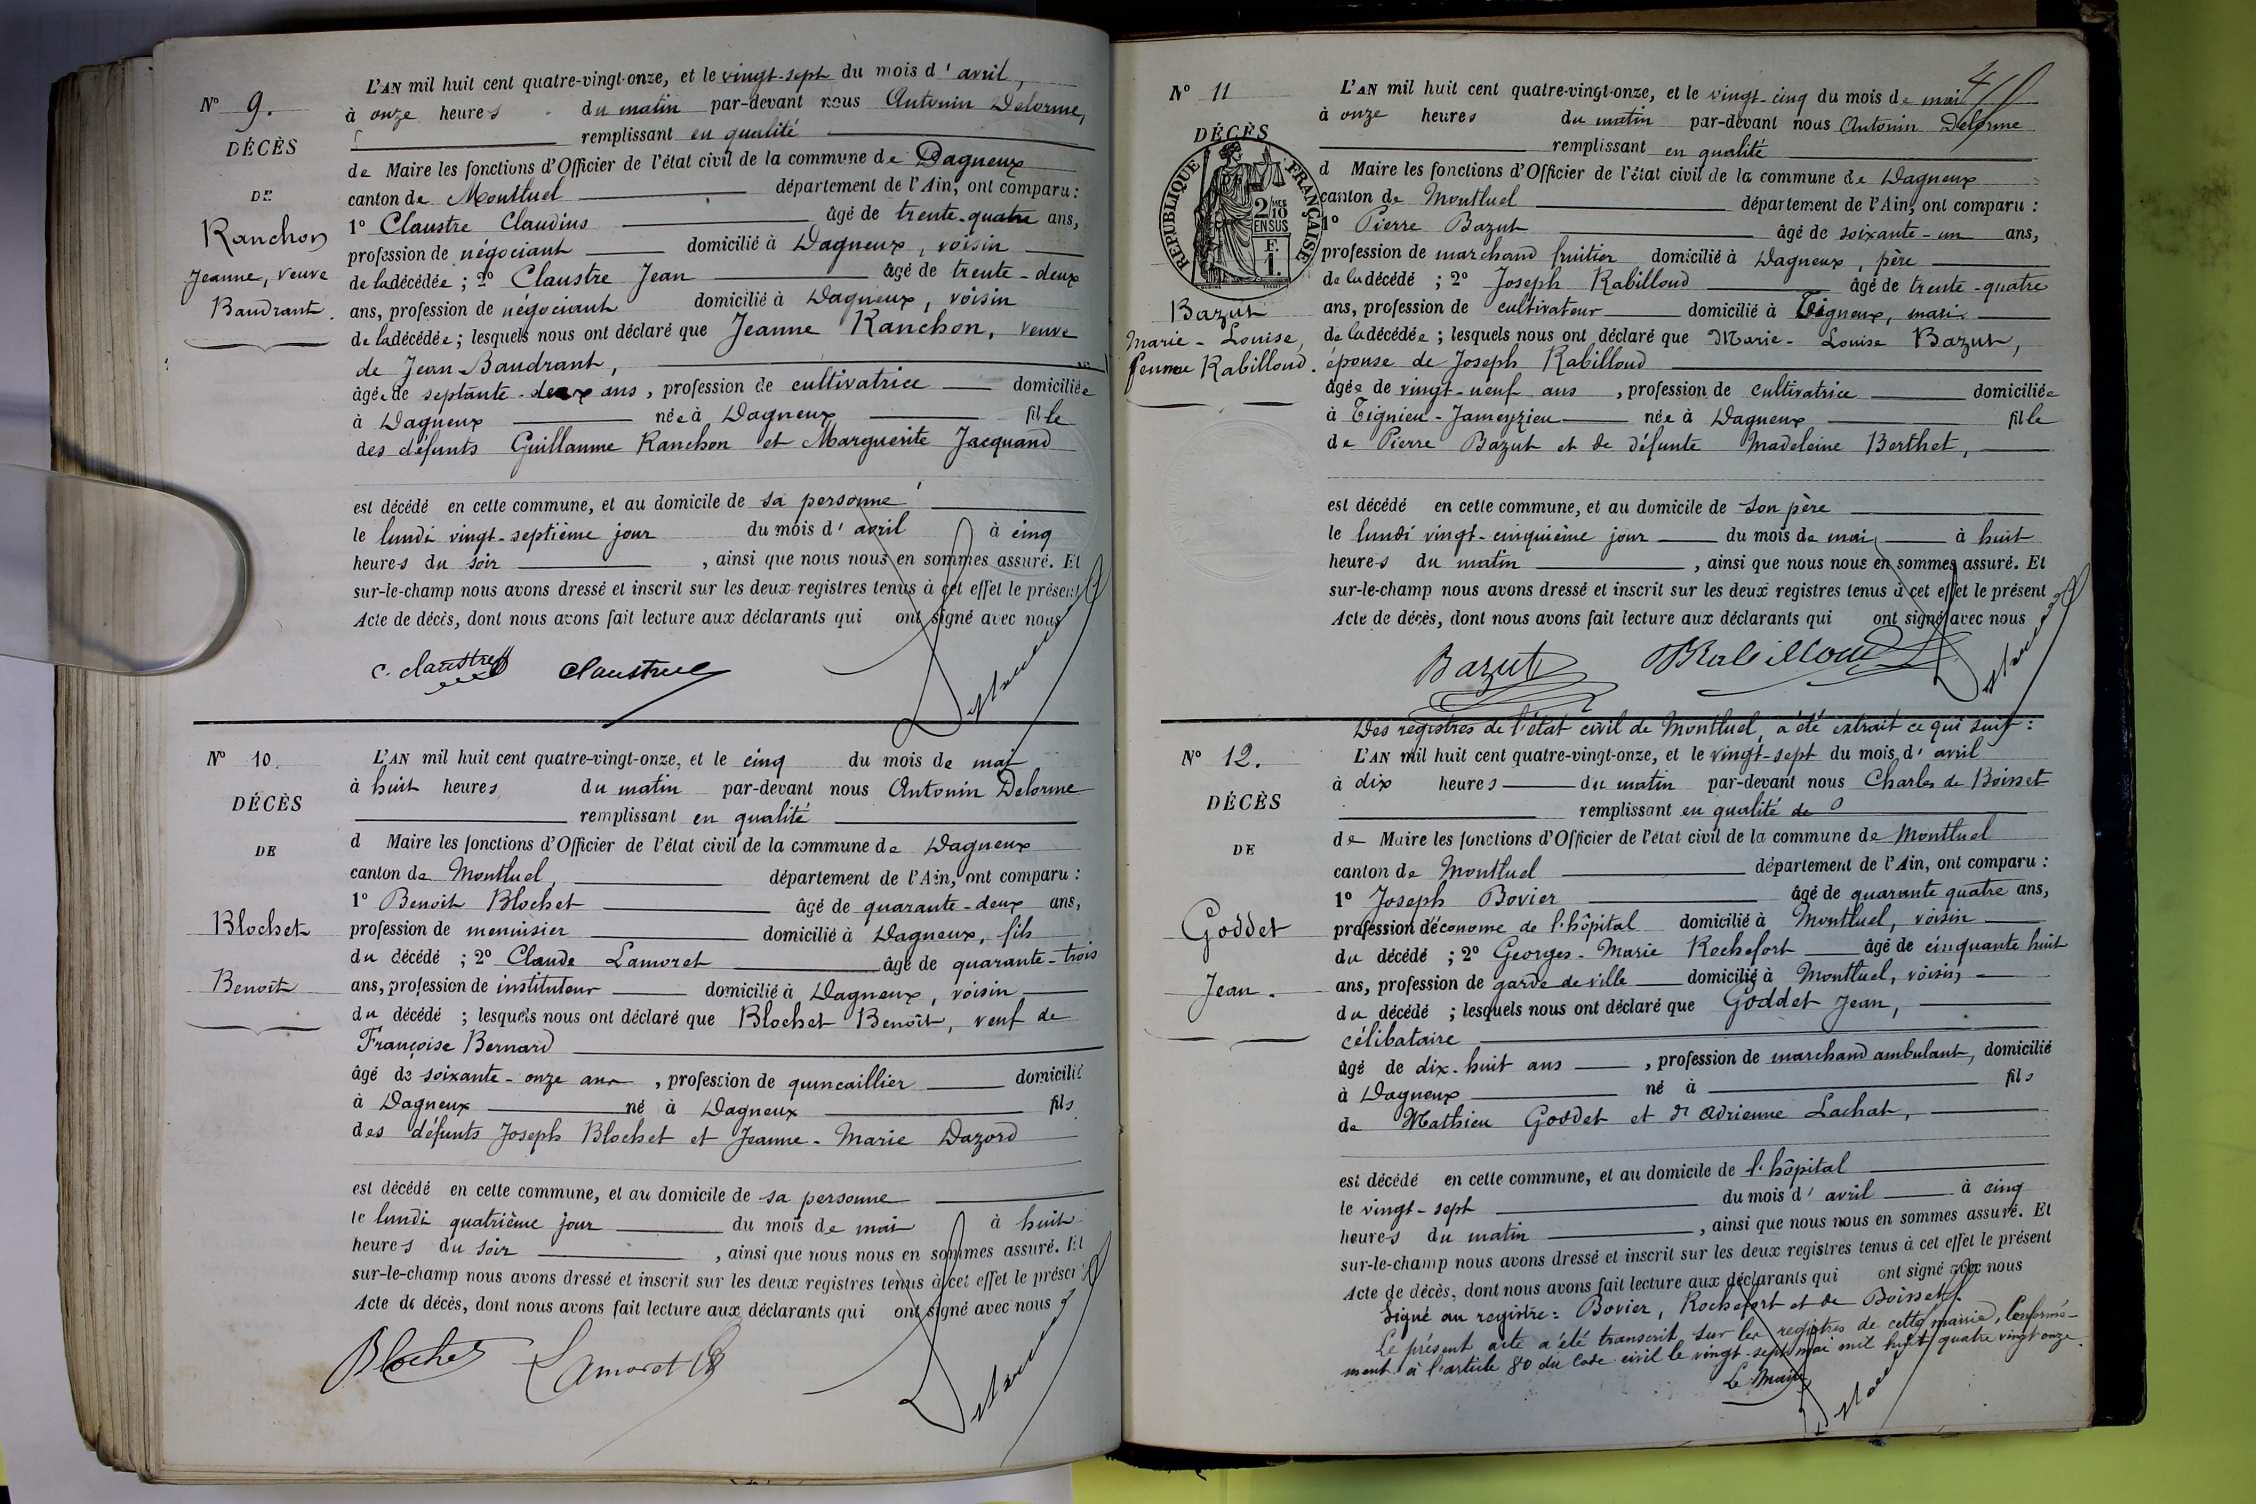 N° 9.
DÉCÈS
DE
Ranchon
Jeanne, veuve
Baudrant.
L'AN mil huit cent quatre-vingt-onze, et le vingt-sept du mois d'avril,
à onze heures du matin par-devant nous Antonin Delorme,
remplissant en qualité
de Maire les fonctions d'Officier de l'état civil de la commune de Dagneux
canton de Montluel département de l'Ain, ont comparu :
1° Claustre Claudius âgé de trente-quatre ans,
profession de négociant domicilié à Dagneux, voisin
de la décédée ; 2° Claustre Jean âgé de trente-deux
ans, profession de négociant domicilié à Dagneux, voisin
de la décédée ; lesquels nous ont déclaré que Jeanne Ranchon, veuve
de Jean Baudrant,
âgée de septante-deux ans, profession de cultivatrice domiciliée
à Dagneux née à Dagneux fille
des défunts Guillaume Ranchon et Marguerite Jacquand
est décédé en cette commune, et au domicile de sa personne
le lundi vingt-septième jour du mois d'avril à cinq
heures du soir , ainsi que nous nous en sommes assuré. Et
sur-le-champ nous avons dressé et inscrit sur les deux registres tenus à cet effet le présent
Acte de décès, dont nous avons fait lecture aux déclarants qui ont signé avec nous
C. Claustre Claustre
Delorme
N° 10.
DÉCÈS
DE
Blochet
Benoît
L'AN mil huit cent quatre-vingt-onze, et le cinq du mois de mai
à huit heures du matin par-devant nous Antonin Delorme
remplissant en qualité
d Maire les fonctions d'Officier de l'état civil de la commune de Dagneux
canton de Montluel, département de l'Ain, ont comparu :
1° Benoit Blochet âgé de quarante-deux ans,
profession de menuisier domicilié à Dagneux, fils
du décédé ; 2° Claude Lamoret âgé de quarante-trois
ans, profession de instituteur domicilié à Dagneux, voisin
du décédé ; lesquels nous ont déclaré que Blochet Benoît, veuf de
Françoise Bernard
âgé de soixante-onze ans , profession de quincaillier domicilié
à Dagneux né à Dagneux fils
des défunts Joseph Blochet et Jeanne-Marie Dazord
est décédé en cette commune, et au domicile de sa personne
le lundi quatrième jour du mois de mai à huit
heures du soir , ainsi que nous nous en sommes assuré. Et
sur-le-champ nous avons dressé et inscrit sur les deux registres tenus à cet effet le présent
Acte de décès, dont nous avons fait lecture aux déclarants qui ont signé avec nous
Blochet Lamoret
Delorme
N° 11
DÉCÈS
RÉPUBLIQUE FRANÇAISE
2/10 MES EN SUS
F. 1.
Bazut
Marie-Louise,
femme Rabilloud.
L'AN mil huit cent quatre-vingt-onze, et le vingt-cinq du mois de mai
à onze heures du matin par-devant nous Antonin Delorme
remplissant en qualité
d Maire les fonctions d'Officier de l'état civil de la commune de Dagneux
canton de Montluel département de l'Ain, ont comparu :
1° Pierre Bazut âgé de soixante-un ans,
profession de marchand fruitier domicilié à Dagneux, père
de la décédé ; 2° Joseph Rabilloud âgé de trente-quatre
ans, profession de cultivateur domicilié à Tigneux, mari
de la décédée ; lesquels nous ont déclaré que Marie-Louise Bazut,
épouse de Joseph Rabilloud
âgée de vingt-neuf ans , profession de cultivatrice domiciliée
à Tignieu-Jameyzieu née à Dagneux fille
de Pierre Bazut et de défunte Madeleine Berthet,
est décédé en cette commune, et au domicile de son père
le lundi vingt-cinquième jour du mois de mai à huit
heures du matin , ainsi que nous nous en sommes assuré. Et
sur-le-champ nous avons dressé et inscrit sur les deux registres tenus à cet effet le présent
Acte de décès, dont nous avons fait lecture aux déclarants qui ont signé avec nous
Bazut Rabilloud
Delorme
N° 12.
DÉCÈS
DE
Goddet
Jean.
Des registres de l'état civil de Montluel, a été extrait ce qui suit :
L'AN mil huit cent quatre-vingt-onze, et le vingt-sept du mois d'avril
à dix heures du matin par-devant nous Charles de Boisset
remplissant en qualité de
de Maire les fonctions d'Officier de l'état civil de la commune de Montluel
canton de Montluel département de l'Ain, ont comparu :
1° Joseph Bovier âgé de quarante quatre ans,
profession d'économe de l'hôpital domicilié à Montluel, voisin
du décédé ; 2° Georges-Marie Rochefort âgé de cinquante huit
ans, profession de garde de ville domicilié à Montluel, voisin,
du décédé ; lesquels nous ont déclaré que Goddet Jean,
célibataire
âgé de dix-huit ans , profession de marchand ambulant, domicilié
à Dagneux né à fils
de Mathieu Goddet et d'Adrienne Lachat,
est décédé en cette commune, et au domicile de l'hôpital
le vingt-sept du mois d'avril à cinq
heures du matin , ainsi que nous nous en sommes assuré. Et
sur-le-champ nous avons dressé et inscrit sur les deux registres tenus à cet effet le présent
Acte de décès, dont nous avons fait lecture aux déclarants qui ont signé avec nous
Signé au registre : Bovier, Rochefort et de Boisset.
Le présent acte a été transcrit sur les registres de cette mairie, conformé-
ment à l'article 80 du Code civil le vingt-sept mai mil huit quatre vingt onze.
Le Maire
Delorme